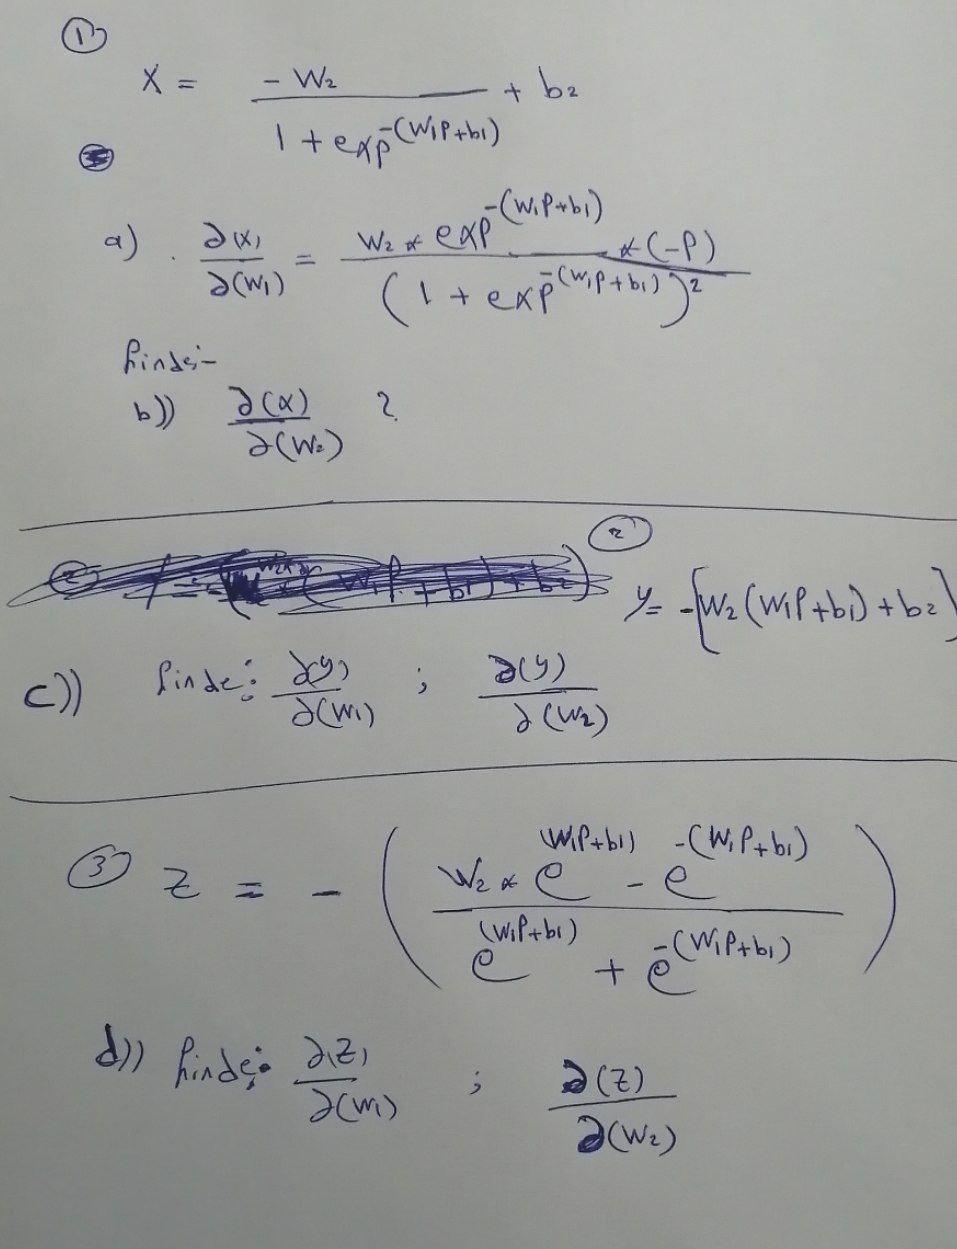 ①
X = - W₂ / (1 + exp^-(W₁P+b₁)) + b₂
a) . ∂(X) / ∂(W₁) = W₂ * exp^-(W₁P+b₁) * (-P) / (1 + exp^-(W₁P+b₁))²
finde:-
b)) ∂(X) / ∂(W₂) ?
② y = -[W₂(W₁P+b₁)+b₂]
c)) finde: ∂(y) / ∂(W₁) ; ∂(y) / ∂(W₂)
③ Z = - ( (W₂ * e^(W₁P+b₁) - e^-(W₁P+b₁)) / (e^(W₁P+b₁) + e^-(W₁P+b₁)) )
d)) finde: ∂(Z) / ∂(W₁) ; ∂(Z) / ∂(W₂)